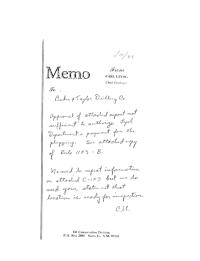 Memo
From
CARL ULVOG
To
Baker & Taylor Drilling Co
Approval of attached report not
sufficient to authorize
Department's payment for the
plugging. See attached copy
of Rule 1103-B.
No need to repeat information
on attached C-103 but we do
need your statement that
location is ready for inspection.
C.U.
Oil Conservation Division
P. O. Box 2088 Santa Fe, N.M. 87501